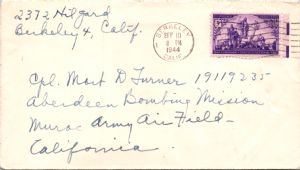 2372 Hilgard
Berkeley 4, Calif.
BERKELEY
SEP 10
8 PM
1944
CALIF
Cpl. Mort D Turner 19119235
Aberdeen Bombing Mission
Muroc Army Air Field-
California.